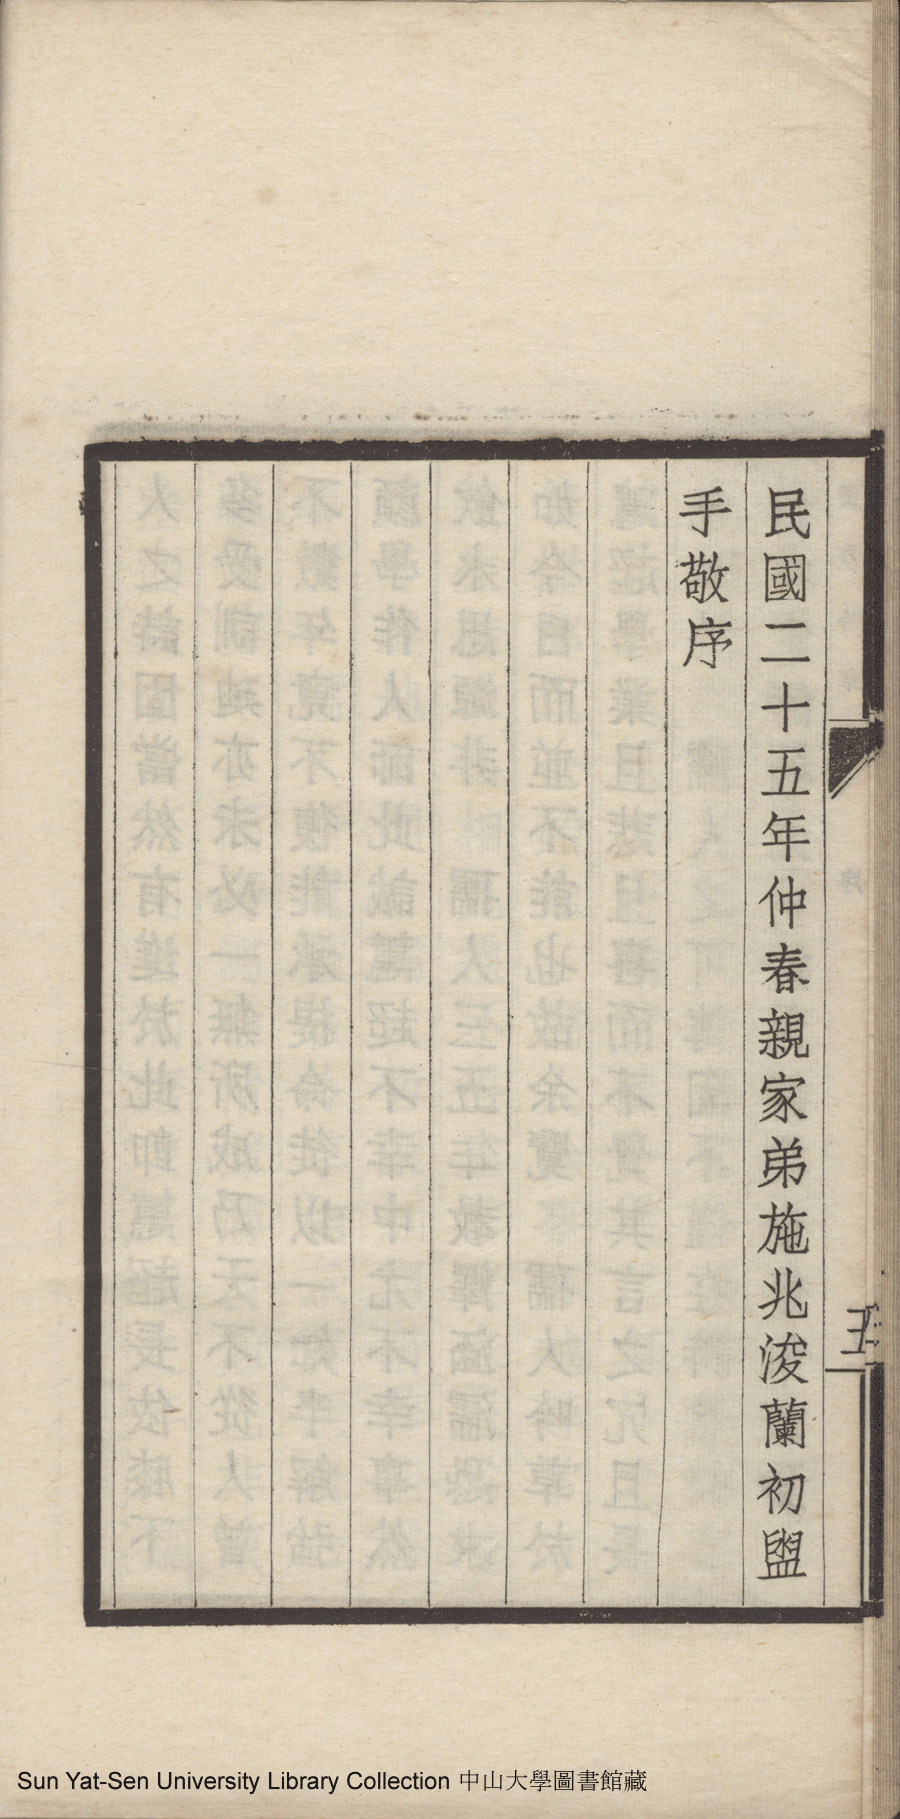 民國二十五年仲春親家弟施兆浚蘭初盥
手敬序
Sun Yat-Sen University Library Collection 中山大學圖書館藏